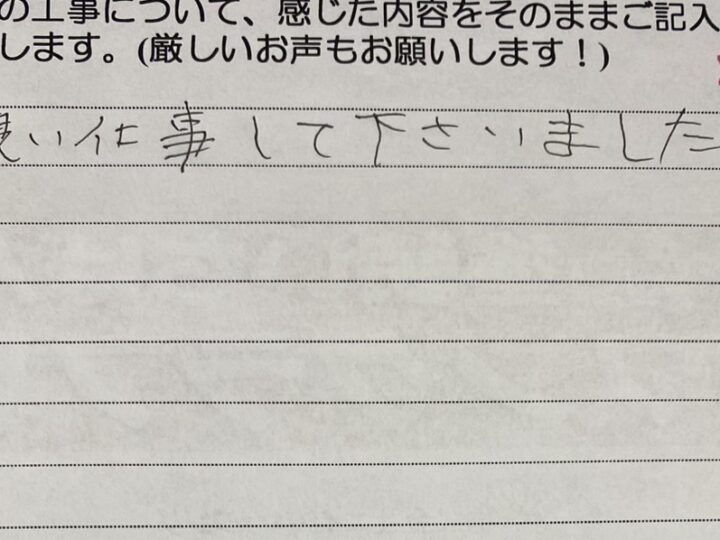 の工事について、感じた内容をそのままご記入
します。(厳しいお声もお願いします！)
良い仕事して下さいました